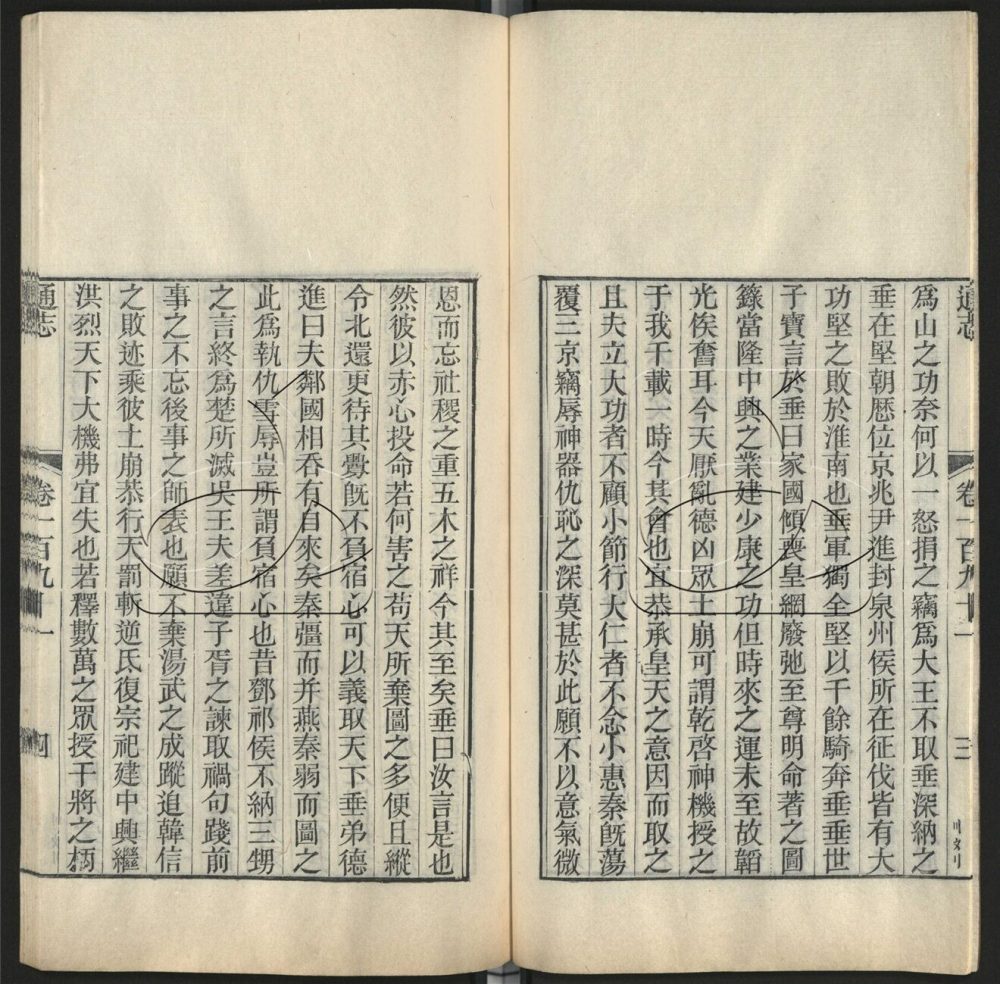 通志
卷一百九十一
三
爲山之功奈何以一怒捐之竊爲大王不取垂深納之
垂在堅朝歷位京兆尹進封泉州侯所在征伐皆有大
功堅之敗於淮南也垂軍獨全堅以千餘騎奔垂垂世
子寶言於垂曰家國傾喪皇綱廢弛至尊明命著之圖
籙當隆中興之業建少康之功但時來之運未至故韜
光俟奮耳今天厭亂德凶眾土崩可謂乾啓神機授之
于我千載一時今其會也宜恭承皇天之意因而取之
且夫立大功者不顧小節行大仁者不念小惠秦旣蕩
覆三京竊辱神器仇恥之深莫甚於此願不以意氣微
恩而忘社稷之重五木之祥今其至矣垂曰汝言是也
然彼以赤心投命若何害之苟天所棄圖之多便且縱
令北還更待其釁旣不負宿心可以義取天下垂弟德
進曰夫鄰國相吞有自來矣秦彊而并燕秦弱而圖之
此爲執仇雪辱豈所謂負宿心也昔鄧祁侯不納三甥
之言終爲楚所滅吳王夫差違子胥之諫取禍句踐前
事之不忘後事之師表也願不棄湯武之成蹤追韓信
之敗迹乘彼土崩恭行天罰斬逆氐復宗祀建中興繼
洪烈天下大機弗宜失也若釋數萬之眾授干將之柄
通志
卷一百九十一
四